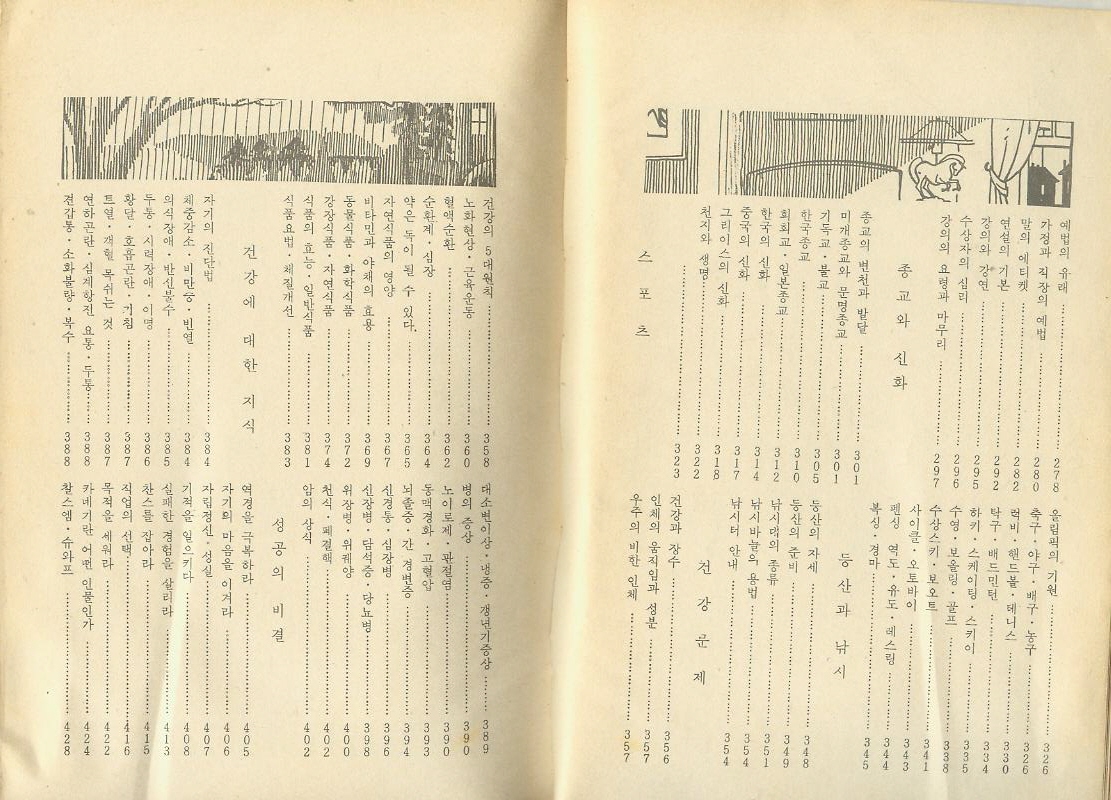 예법의 유래 278
가정과 직장의 예법 280
말의 에티켓 282
연설의 기본 292
강의와 강연 295
수상자의 심리 296
강의의 요령과 마무리 297
종교와 신화
종교의 변천과 발달 301
미개종교와 문명종교
기독교·불교 305
한국종교 310
회회교·일본종교 312
한국의 신화 314
중국의 신화 317
그리이스의 신화 318
천지와 생명 322
323
스포츠
올림픽의 기원 326
축구·야구·배구·농구 326
럭비·핸드볼·테니스 330
탁구·배드민턴 334
하키·스케이팅·스키이 335
수영·보울링·골프 338
수상스키·보오트 341
사이클·오토바이 343
펜싱 역도·유도·레스링 344
복싱·경마 345
등산과 낚시
등산의 자세 348
등산의 준비 349
낚시대의 종류 351
낚시바늘의 용법 354
낚시터 안내 354
건강문제
건강과 장수 356
인체의 움직임과 성분 357
우주의 비한 인체 357
건강의 5대원칙 358
노화현상·근육운동 360
혈액순환 362
순환계·심장 364
약은 독이 될 수 있다. 365
자연식품의 영양 367
비타민과 야채의 효용 369
동물식품·화학식품 372
강장식품·자연식품 374
식품의 효능·일반식품 381
식품요법·체질개선 383
건강에 대한 지식
자기의 진단법 384
체중감소·비만증·빈열 384
의식장애·반신불수 385
두통·시력장애·이명 386
황달·호흡곤란·기침 387
트열·객혈 목쉬는 것 387
연하곤란·심계항진 요통·두통 388
견갑통·소화불량·복수 388
대소변이상·냉증·갱년기증상 389
병의 증상 390
노이로제·관절염 390
동맥경화·고혈압 393
뇌졸증·간 경변증 394
신경통·심장병 396
신장병·담석증·당뇨병 398
위장병·위궤양 400
천식·폐결핵 402
암의 상식 402
성공의 비결
역경을 극복하라 405
자기의 마음을 이겨라 406
자립정신·성실 407
기적을 일으키다 408
실패한 경험을 살리라 413
찬스를 잡아라 415
직업의 선택 416
목적을 세워라 422
카네기란 어떤 인물인가 424
찰스엠·슈와프 428